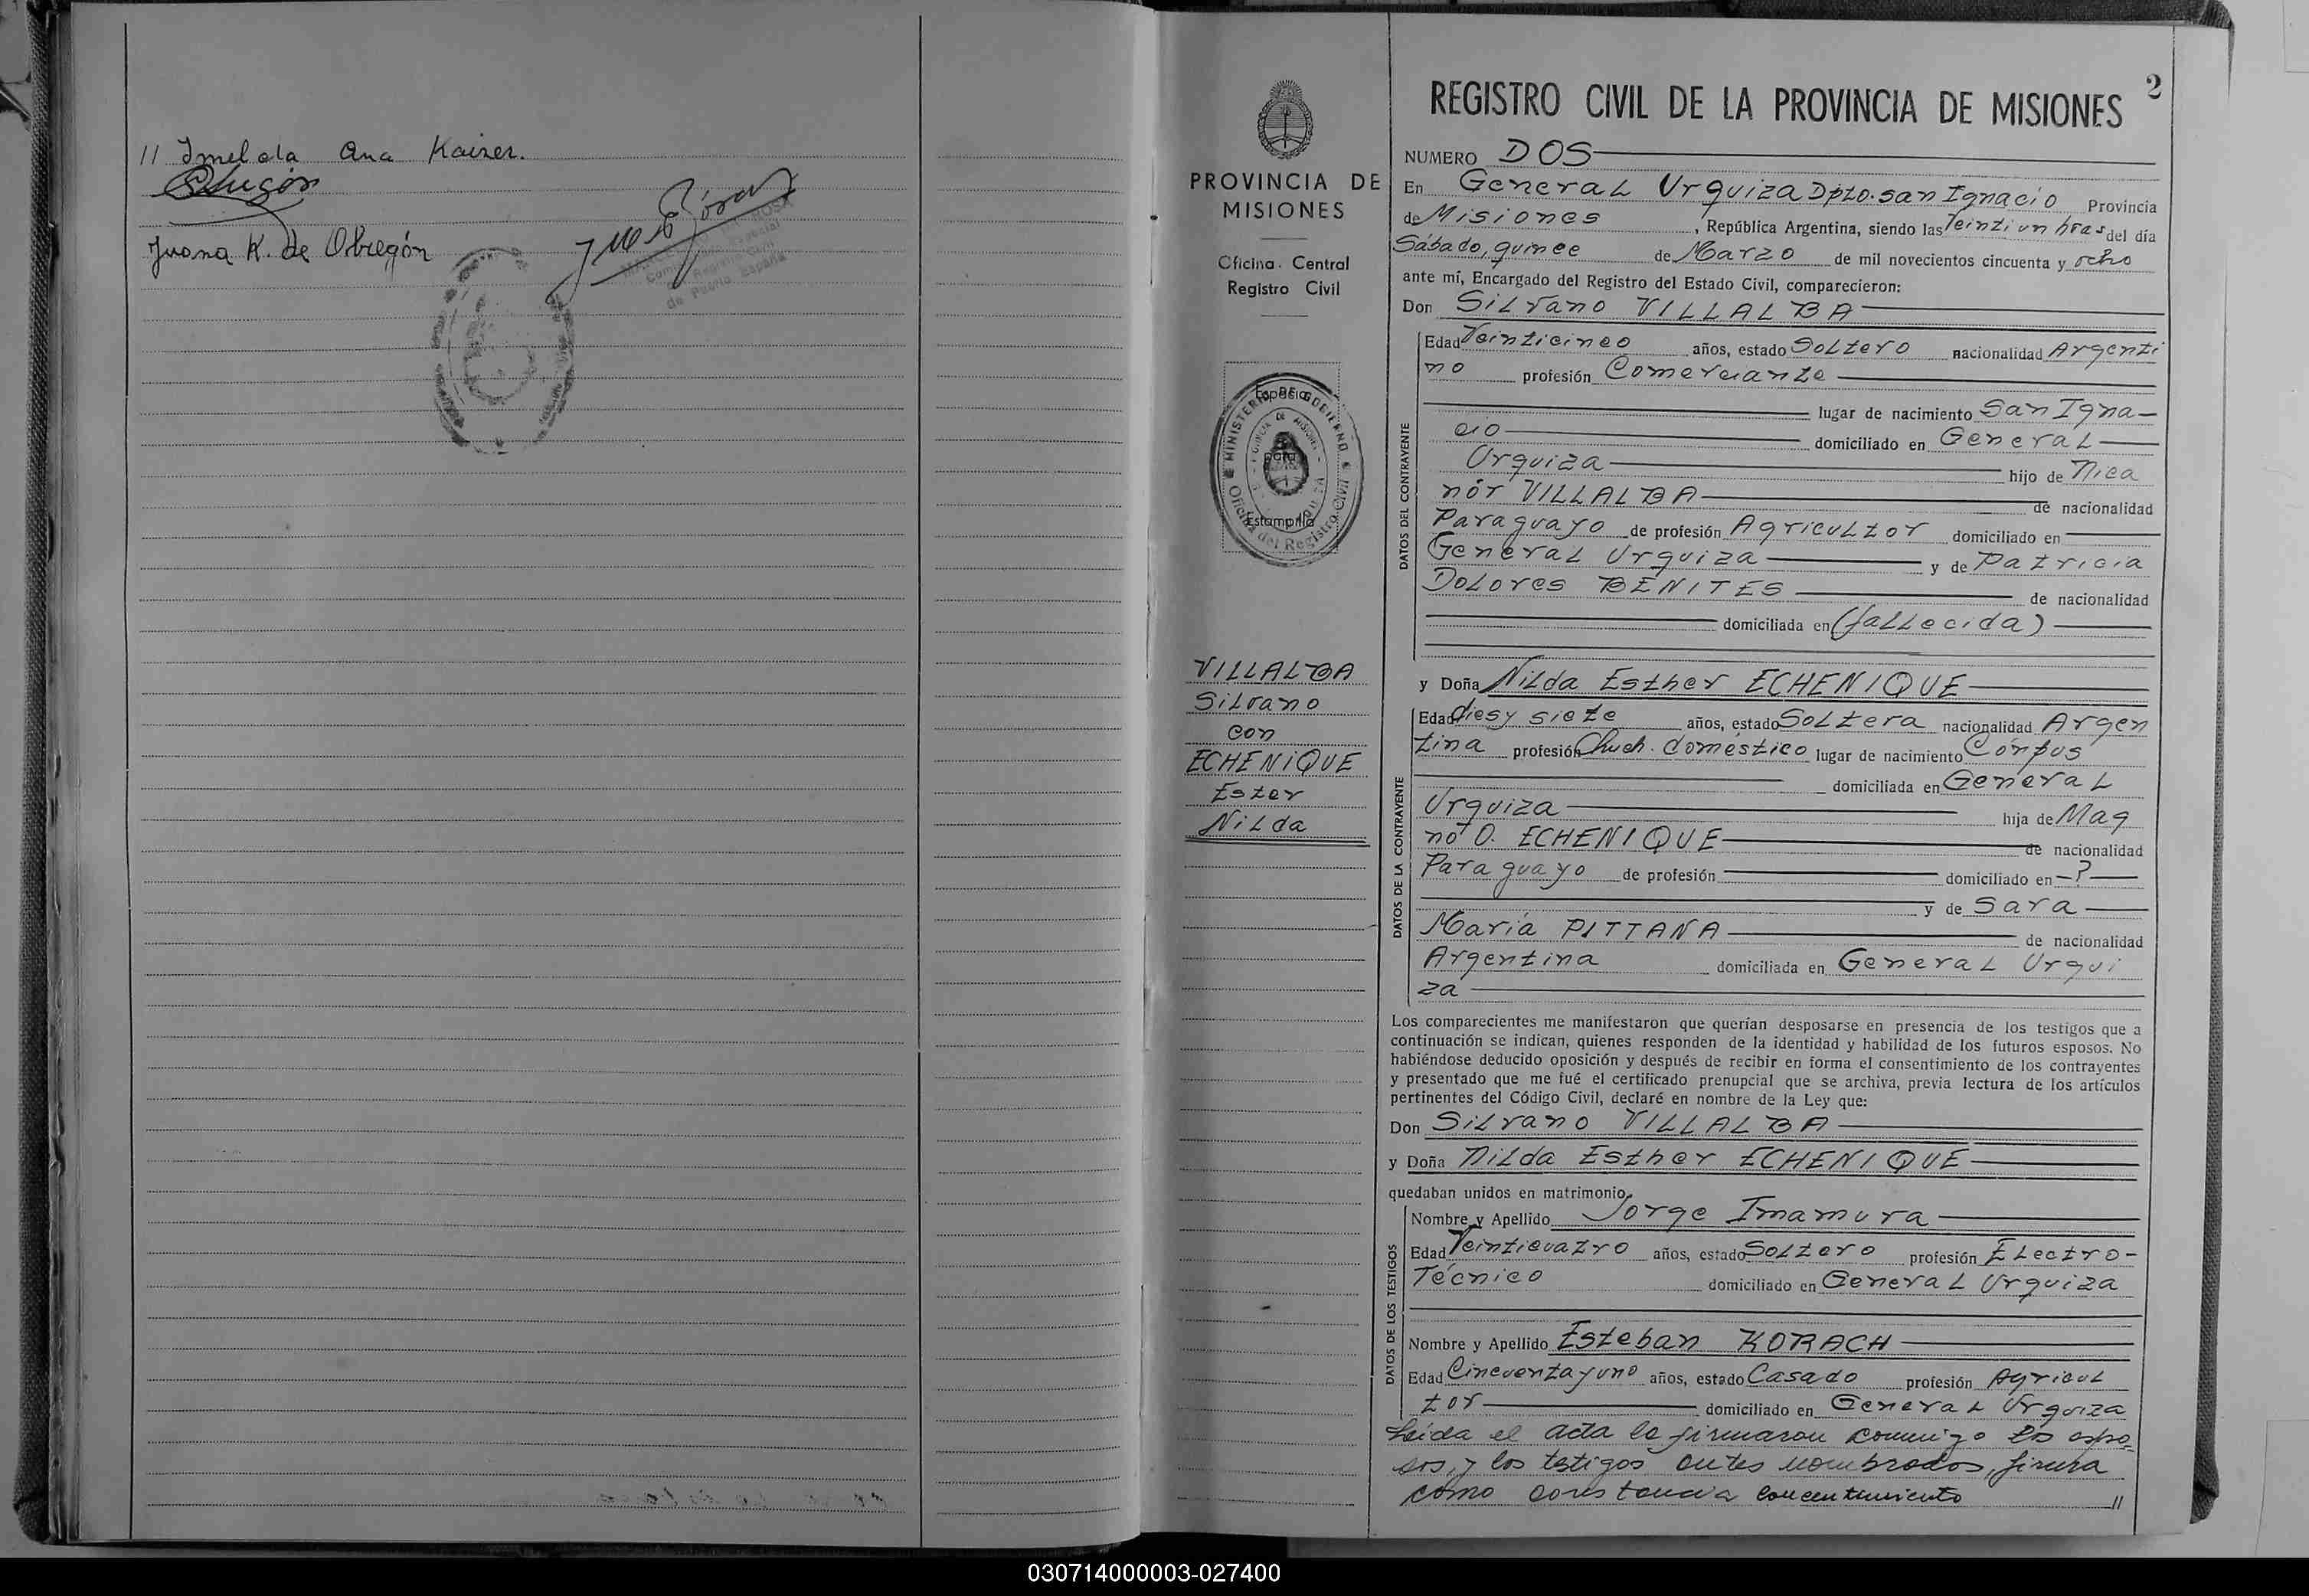 11 Imelda Ana Kaiser.
Juana K. de Obregón
de Patria España
2
REGISTRO CIVIL DE LA PROVINCIA DE MISIONES
PROVINCIA DE
MISIONES
Oficina Central
Registro Civil
Especio
para
Estampilla
MINISTERIO DE GOBIERNO
Oficina del Registro Civil
VILLALBA
Silvano
con
ECHENIQUE
Ester
Nilda
NUMERO DOS
En General Urquiza Dpto. san Ignacio Provincia
de Misiones, República Argentina, siendo las Veintiun hras del día
Sábado, quince de Marzo de mil novecientos cincuenta y ocho
ante mí, Encargado del Registro del Estado Civil, comparecieron:
Don Silvano VILLALBA
DATOS DEL CONTRAYENTE
Edad Veinticinco años, estado Soltero nacionalidad Argenti
no profesión Comerciante
lugar de nacimiento San Igna-
cio domiciliado en General
Urquiza hijo de Nica
nór VILLALBA de nacionalidad
Paraguayo de profesión Agricultor domiciliado en
General Urquiza y de Patricia
Dolores BENITES de nacionalidad
domiciliada en (fallecida)
y Doña Nilda Esther ECHENIQUE
DATOS DE LA CONTRAYENTE
Edad diesy siete años, estado Soltera nacionalidad Argen
tina profesión Queh. doméstico lugar de nacimiento Córpus
domiciliada en General
Urquiza hija de Mag
no O. ECHENIQUE de nacionalidad
Paraguayo de profesión domiciliado en -?-
y de Sara
María PITTANA de nacionalidad
Argentina domiciliada en General Urqui
za
Los comparecientes me manifestaron que querían desposarse en presencia de los testigos que a
continuación se indican, quienes responden de la identidad y habilidad de los futuros esposos. No
habiéndose deducido oposición y después de recibir en forma el consentimiento de los contrayentes
y presentado que me fué el certificado prenupcial que se archiva, previa lectura de los artículos
pertinentes del Código Civil, declaré en nombre de la Ley que:
Don Silvano VILLALBA
y Doña Nilda Esther ECHENIQUE
quedaban unidos en matrimonio.
DATOS DE LOS TESTIGOS
Nombre y Apellido Jorge Imamura
Edad Veinticuatro años, estado Soltero profesión Electro-
Técnico domiciliado en General Urquiza
Nombre y Apellido Esteban KORACH
Edad Cincuenta y uno años, estado Casado profesión Agricul
tor domiciliado en General Urquiza
Leida el acta la firmaron conmigo los espo-
sos, y los testigos antes nombrados, firma
como constancia concentimiento //
030714000003-027400